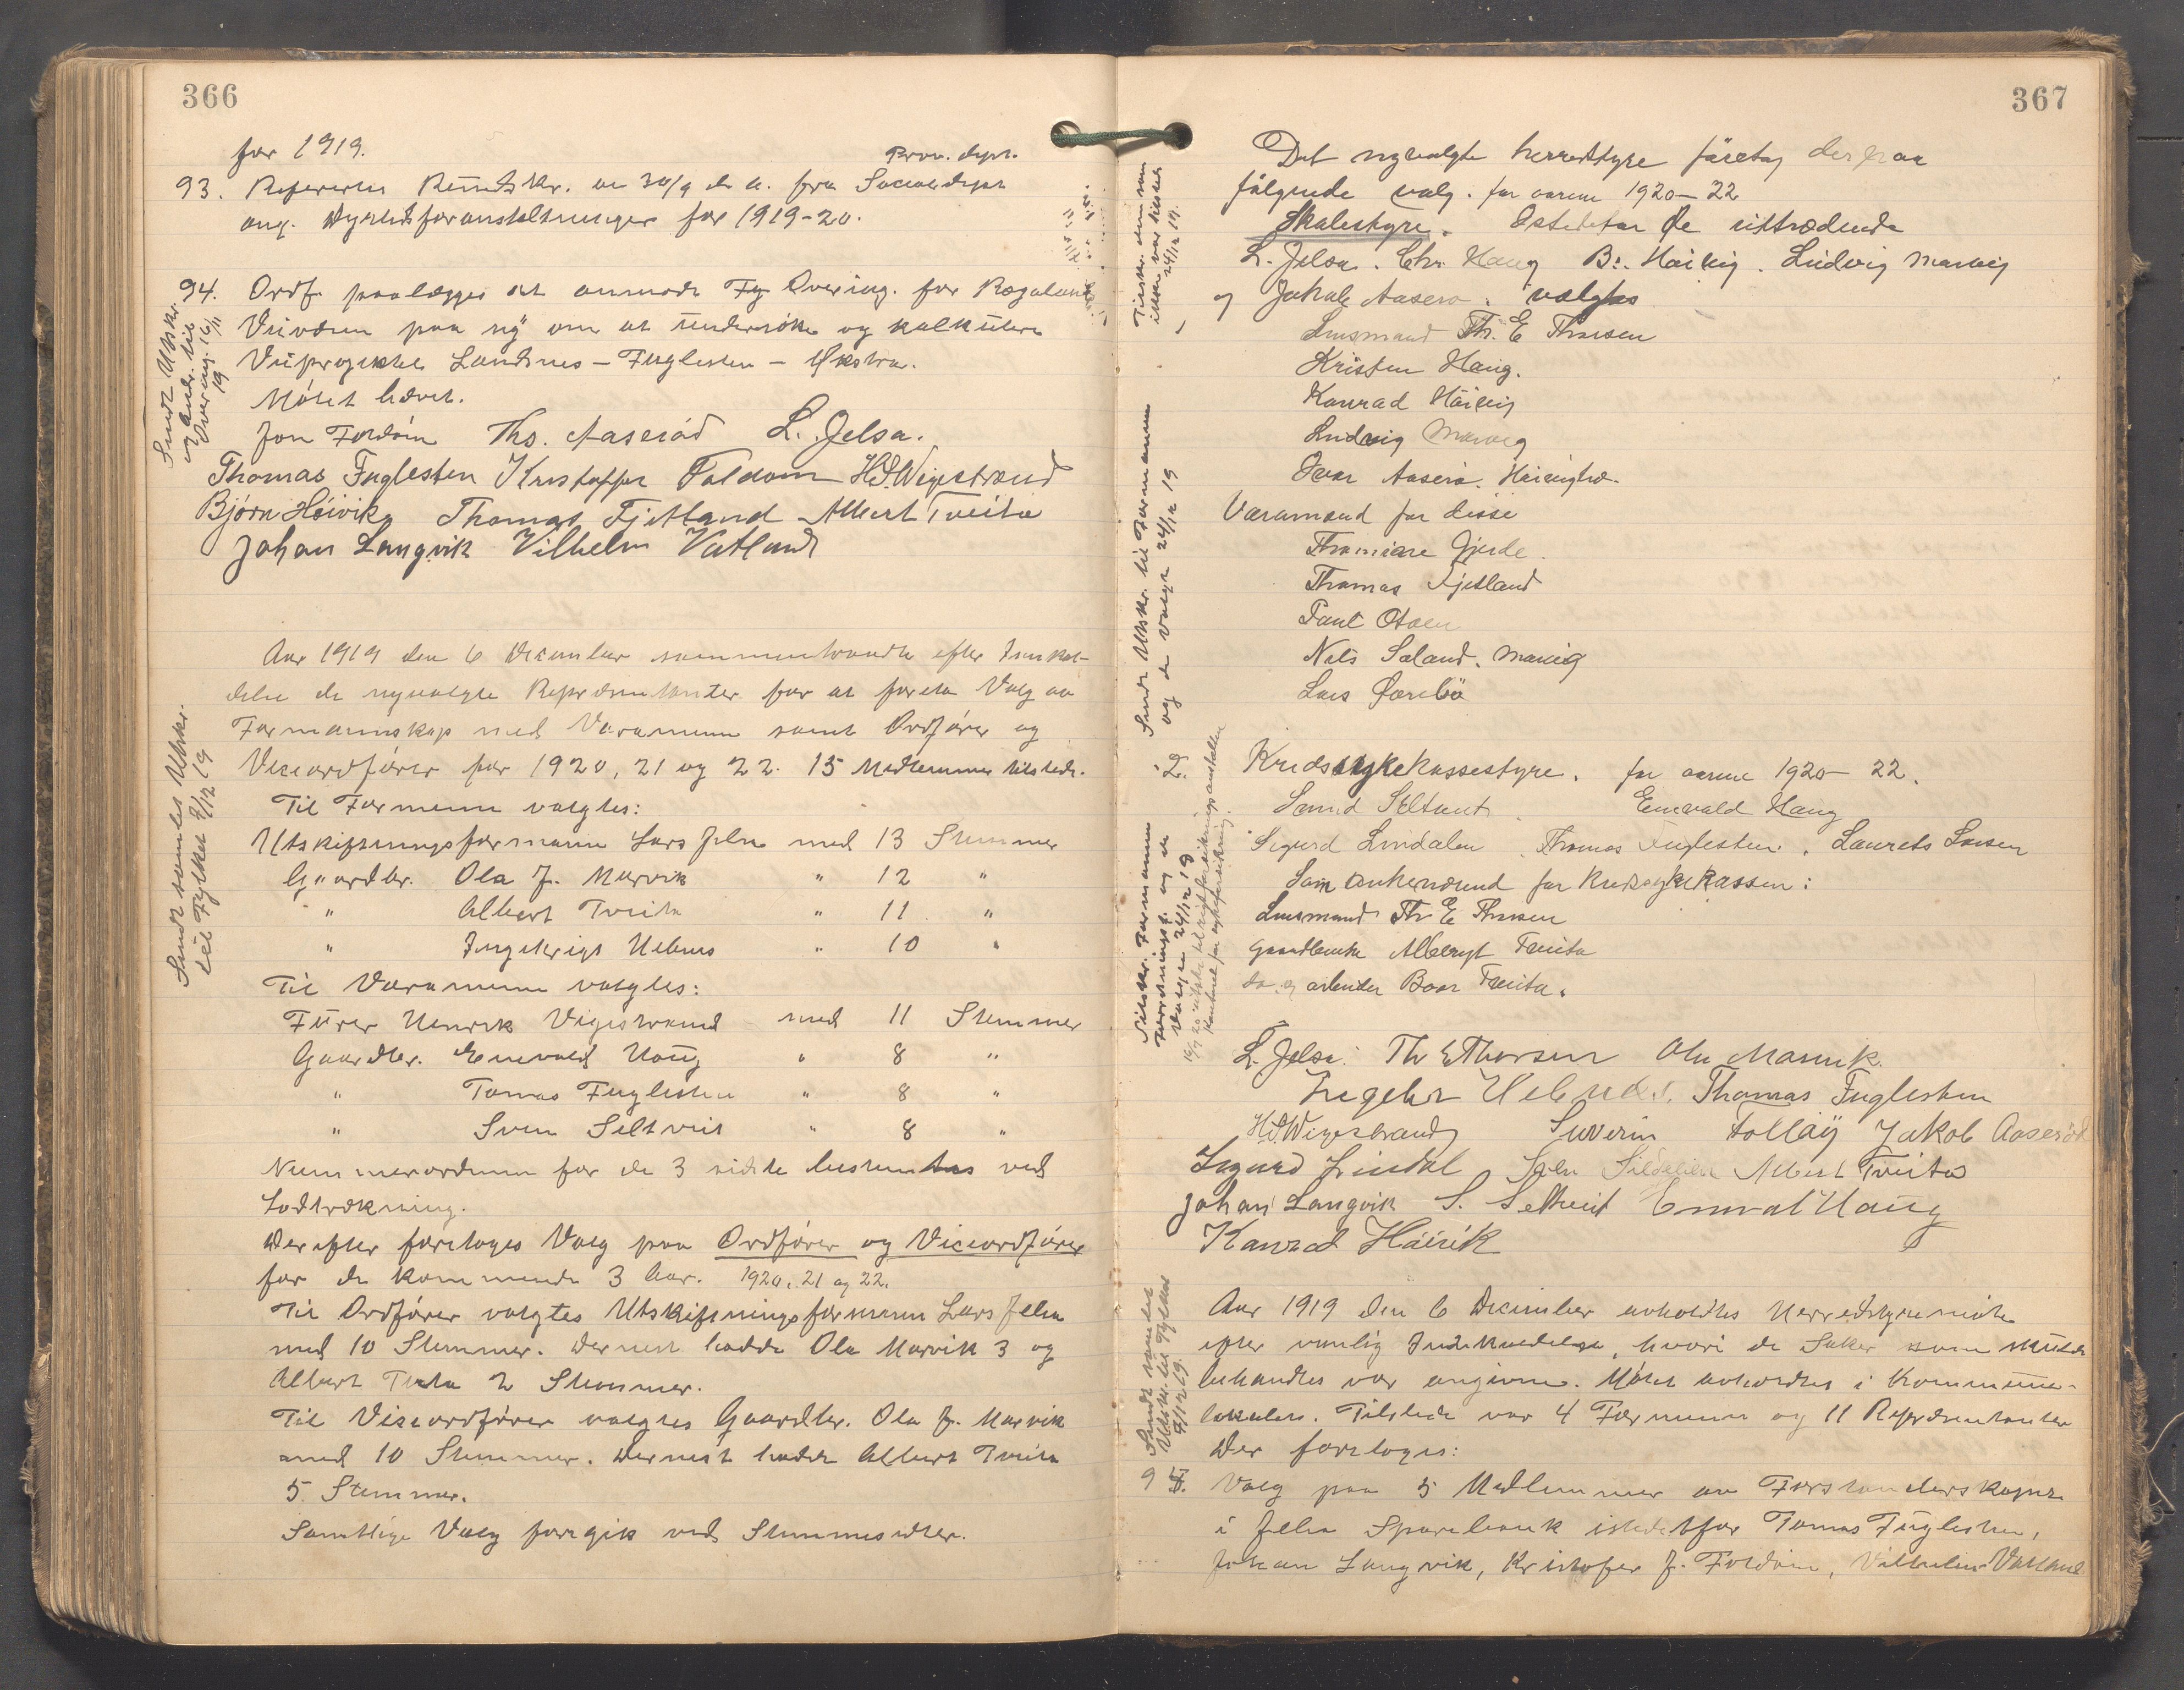 366
for 1919.
Prov. dept.
93. Refereres Rundskr. av 30/9 d. a. fra Socialdept
ang. Dyrtidsforanstaltninger for 1919-20.
94. Ordf. paalægges at anmode Fg Overing. for Rogalands
Veivæsen paa ny om at undersöke og kalkulere
Veiprojektet Landsnes - Fuglesten - Økstra.
Mötet hævet.
Sendt Utskr.
og Andr. til
Overing. 16/11
19
Jon Foldöin Ths. Aaseröd L. Jelsa.
Thomas Fuglesten Kristoffer Foldøen H.S. Wigestrand
Björn Höivik Thomas Fjetland Albert Tveita
Johan Langvik Vilhelm Vatland
Aar 1919 den 6 December sammentraadte efter Indkal-
delse de nyvalgte Repræsentanter for at foreta Valg av
Formannskap med Varamenn samt Ordförer og
Viceordförer for 1920, 21 og 22. 15 Medlemmer tilstede.
Til Formenn valgtes:
Utskiftningsformann Lars Jelsa med 13 Stemmer
Gaardbr. Ola J. Marvik " 12 "
" Albert Tveita " 11 "
" Ingebrigt Hebnes " 10 "
Til Varamenn valgtes:
Fürer Henrik Vigestrand med 11 Stemmer
Gaardbr. Enevald Haug " 8 "
" Tomas Fuglesten " 8 "
" Sven Seltveit " 8 "
Nummerordenen for de 3 sidste bestemtes ved
Lodtrækning.
Derefter foretoges Valg paa Ordförer og Viceordförer
for de kommende 3 Aar. 1920, 21 og 22.
Til Ordförer valgtes Utskiftningsformann Lars Jelsa
med 10 Stemmer. Dernest hadde Ola Marvik 3 og
Albert Tveita 2 Stemmer.
Til Viceordförer valgtes Gaardbr. Ola J. Marvik
med 10 Stemmer. Dernest hadde Albert Tveita
5 Stemmer.
Samtlige Valg foregik ved Stemmesedler.
Sendt samlet Utskr.
til Fylket 9/12 19
367
Det nyvalgte herredstyre företog derpaa
fölgende valg. for aarene 1920-22
Skolestyre. Istedetfor de uttrædende
L. Jelsa. Chr. Haug B. Höivig. Ludvig Marvig
og Jakob Aaserö. valgtes
Lensmand Th. E Thorsen
Kristen Haug.
Konrad Höivig
Ludvig Marvig
Ivar Aaserö.
Varamænd for disse
Gjerde.
Thomas Fjetland
Paul Otsen
Nils Saland. Marvig
Lars
Kredssykekassestyre. for aarene 1920-22.
Svend Seltveit. Enevald Haug
Sigurd Lindalen. Thomas Fuglesten. Laurets Larsen
Som ankenævnd for Kredssykekassen:
Lensmand Th E Thorsen
Gaardbruker Albert Tveita
do. og arbeider Boar Tveita.
L. Jelsa. Th E Thorsen Ola Marvik.
Ingebr Hebnes. Thomas Fuglesten
H.S. Wigestrand Suverin Follöy Jakob Aaseröd
Sigurd Lindal Albert Tveita
Johan Langvik S. Seltveit Enevald Haug
Konrad Höivik
Tilskr. dem som
ikke var tilstede
24/12 19.
Sendt Utskr. til Formannen
og de valgte 24/12 19
Tilskr. Formannen
og de
valgte 24/12 19
Aar 1919 den 6 December avholdtes Herredstyremöte
efter vanlig Indkaldelse, hvori de Saker som skulde
behandles var angivne. Mötet avholdtes i Kommune-
lokalet. Tilstede var 4 Formenn og 11 Repræsentanter
Der foretoges:
Sendt samlet
Utskr. til Fylket
9/12 19.
95. Valg paa 5 Medlemmer av Forstanderskapet
i Jelsa Sparebank istedetfor Tomas Fuglesten,
Johan Langvik, Kristofer J. Foldöin, Vilhelm Vatland